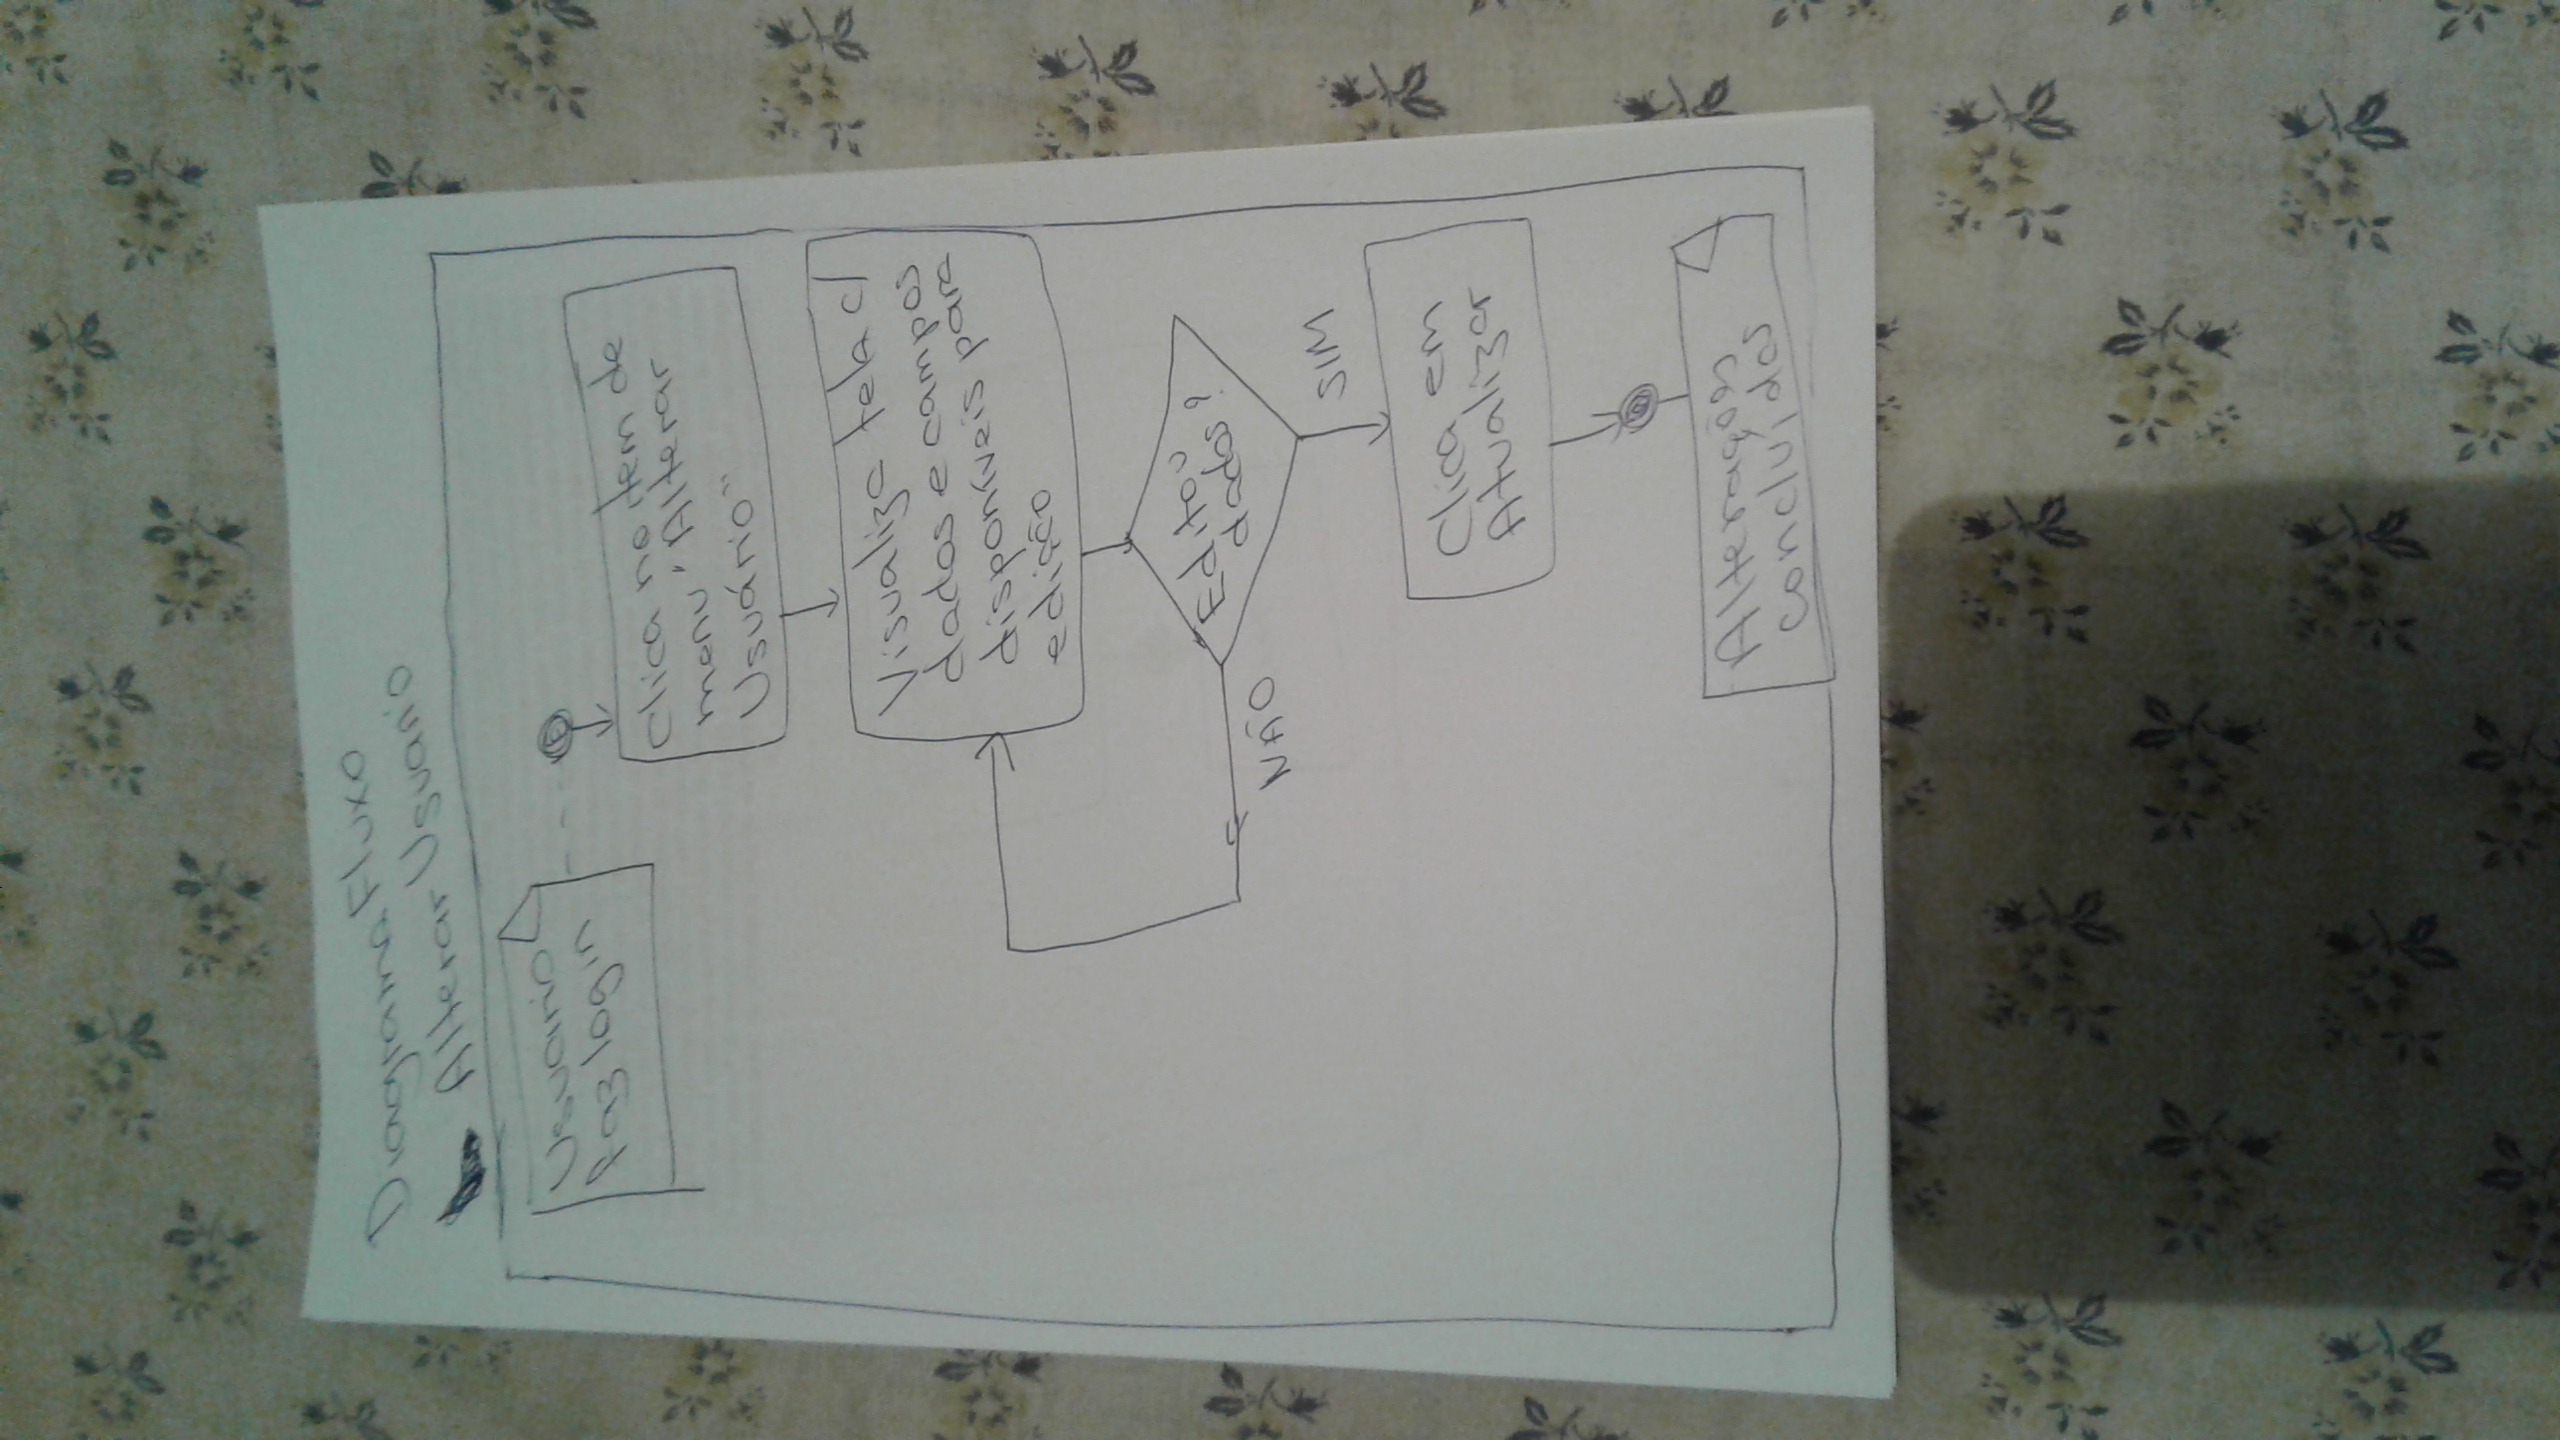 Diagrama Fluxo
Alterar Usuario
Usuario
faz login
Clica no item de
menu "Alterar
Usuário"
Visualiza tela c/
dados e campos
disponíveis para
edição
Editou
dados?
NÃO
SIM
Clica em
Atualizar
Alterações
concluídas